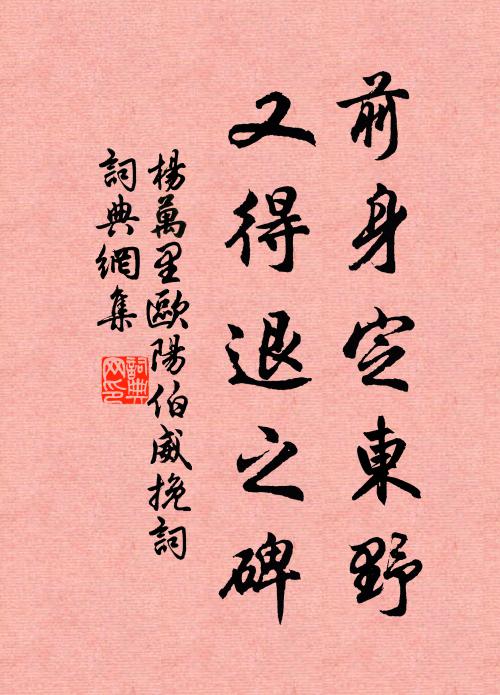 前身定東野
又得退之碑
楊萬里歐陽伯威挽詞
詞典網集
詞典網印